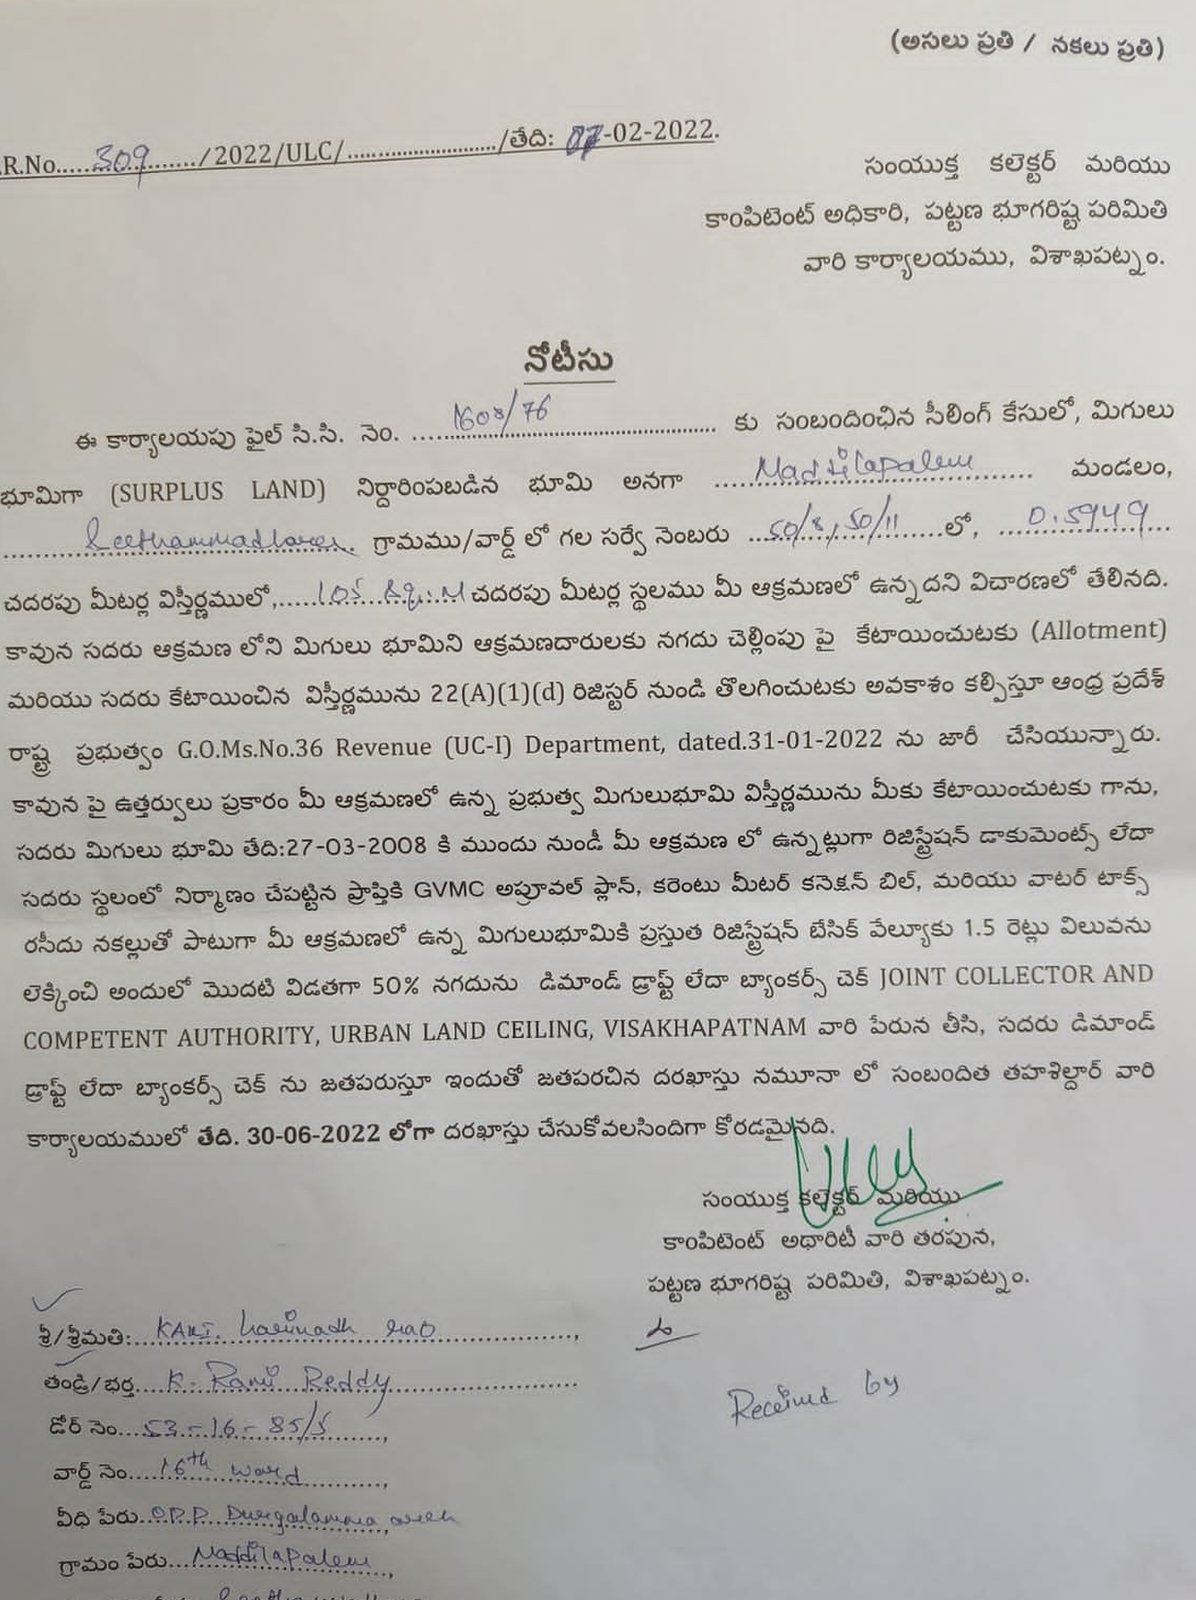 (అసలు ప్రతి / నకలు ప్రతి)
.R.No.....309......../2022/ULC/........................../తేది: 07-02-2022.
సంయుక్త కలెక్టర్ మరియు
కాంపిటెంట్ అధికారి, పట్టణ భూగరిష్ట పరిమితి
వారి కార్యాలయము, విశాఖపట్నం.
నోటీసు
ఈ కార్యాలయపు ఫైల్ సి.సి. నెం. ....1608/76.... కు సంబందించిన సీలింగ్ కేసులో, మిగులు
భూమిగా (SURPLUS LAND) నిర్దారింపబడిన భూమి అనగా ....Maddilapalem.... మండలం,
....Seethammadhara.... గ్రామము/వార్డ్ లో గల సర్వే నెంబరు ...50/8, 50/11...లో, ...0.5949...
చదరపు మీటర్ల విస్తీర్ణములో,....105 Sq. M చదరపు మీటర్ల స్థలము మీ ఆక్రమణలో ఉన్నదని విచారణలో తేలినది.
కావున సదరు ఆక్రమణ లోని మిగులు భూమిని ఆక్రమణదారులకు నగదు చెల్లింపు పై కేటాయించుటకు (Allotment)
మరియు సదరు కేటాయించిన విస్తీర్ణమును 22(A)(1)(d) రిజిస్టర్ నుండి తొలగించుటకు అవకాశం కల్పిస్తూ ఆంధ్ర ప్రదేశ్
రాష్ట్ర ప్రభుత్వం G.O.Ms.No.36 Revenue (UC-I) Department, dated.31-01-2022 ను జారీ చేసియున్నారు.
కావున పై ఉత్తర్వులు ప్రకారం మీ ఆక్రమణలో ఉన్న ప్రభుత్వ మిగులుభూమి విస్తీర్ణమును మీకు కేటాయించుటకు గాను,
సదరు మిగులు భూమి తేది:27-03-2008 కి ముందు నుండీ మీ ఆక్రమణ లో ఉన్నట్లుగా రిజిస్ట్రేషన్ డాకుమెంట్స్ లేదా
సదరు స్థలంలో నిర్మాణం చేపట్టిన ప్రాప్తికి GVMC అప్రూవల్ ప్లాన్, కరెంటు మీటర్ కనెక్షన్ బిల్, మరియు వాటర్ టాక్స్
రసీదు నకల్లుతో పాటుగా మీ ఆక్రమణలో ఉన్న మిగులుభూమికి ప్రస్తుత రిజిస్ట్రేషన్ బేసిక్ వేల్యూకు 1.5 రెట్లు విలువను
లెక్కించి అందులో మొదటి విడతగా 50% నగదును డిమాండ్ డ్రాఫ్ట్ లేదా బ్యాంకర్స్ చెక్ JOINT COLLECTOR AND
COMPETENT AUTHORITY, URBAN LAND CEILING, VISAKHAPATNAM వారి పేరున తీసి, సదరు డిమాండ్
డ్రాఫ్ట్ లేదా బ్యాంకర్స్ చెక్ ను జతపరుస్తూ ఇందుతో జతపరచిన దరఖాస్తు నమూనా లో సంబందిత తహశిల్దార్ వారి
కార్యాలయములో తేది. 30-06-2022 లోగా దరఖాస్తు చేసుకోవలసిందిగా కోరడమైనది.
సంయుక్త కలెక్టర్ మరియు
కాంపిటెంట్ అథారిటీ వారి తరపున,
పట్టణ భూగరిష్ట పరిమితి, విశాఖపట్నం.
శ్రీ/శ్రీమతి:...KARI. Harinadh rao....,
తండ్రి/భర్త....K. Rami Reddy....
డోర్ నెం...53-16-85/5....,
Received by
వార్డ్ నెం....16th ward....,
వీధి పేరు...OPP. Durgalamma area
గ్రామం పేరు....Maddilapalem....,